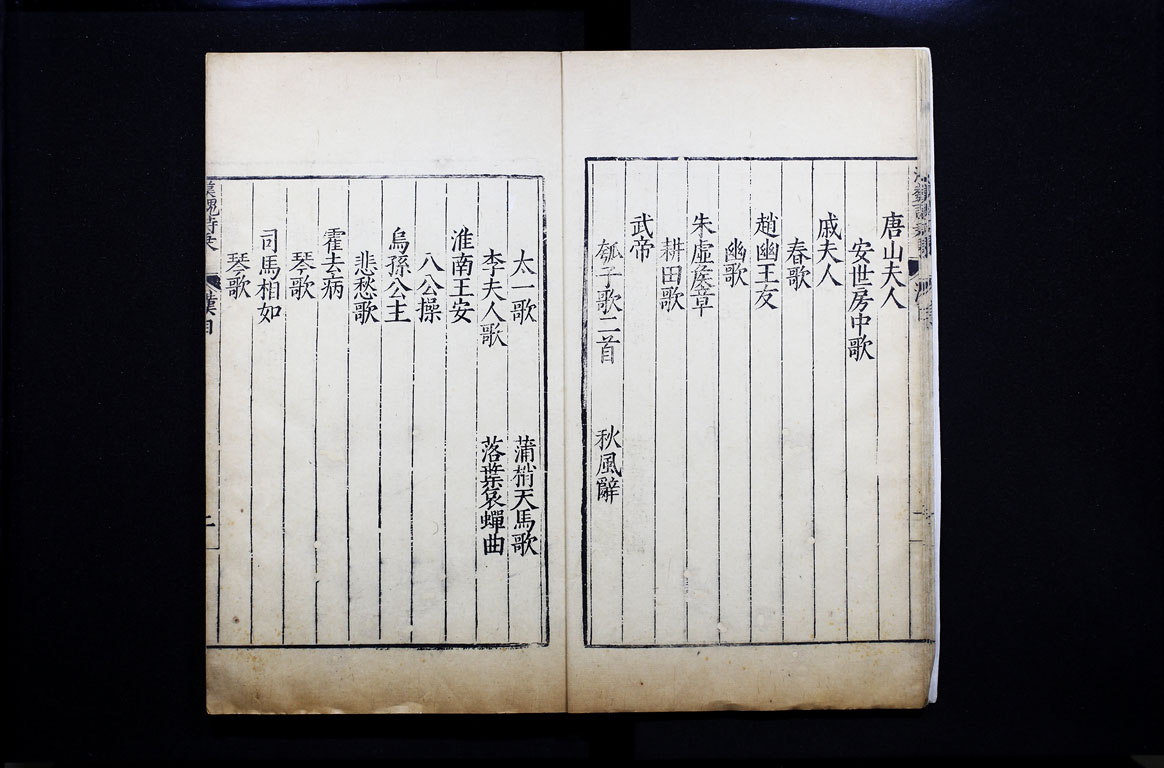 唐山夫人
安世房中歌
戚夫人
春歌
趙幽王友
幽歌
朱虛侯章
耕田歌
武帝
瓠子歌二首 秋風辭
太一歌 蒲梢天馬歌
李夫人歌 落葉哀蟬曲
淮南王安
八公操
烏孫公主
悲愁歌
霍去病
琴歌
司馬相如
琴歌
漢魏詩
漢目
二